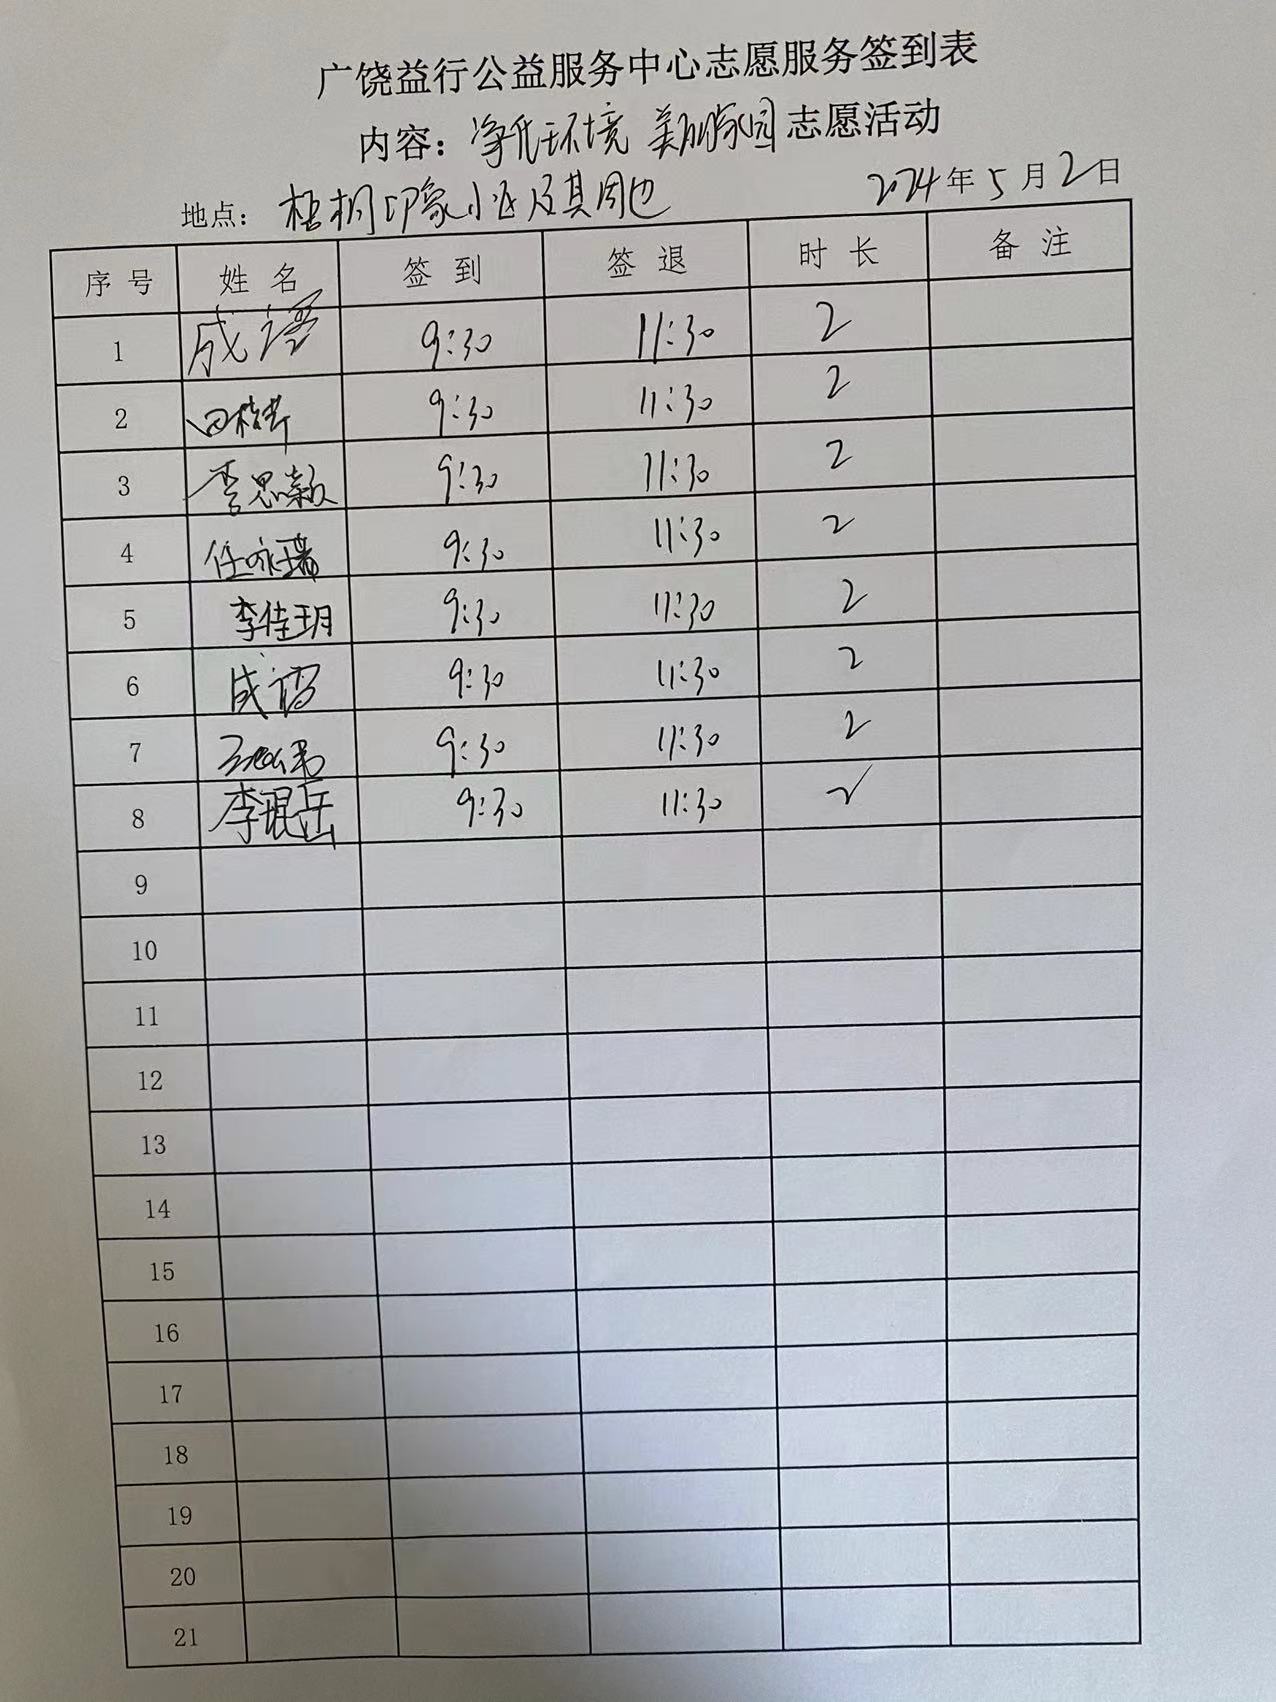 广饶益行公益服务中心志愿服务签到表
内容：净化环境 美丽家园志愿活动
地点：梧桐印象小区及其周边 2024年5月2日
序号 姓名 签到 签退 时长 备注
1 成 9:30 11:30 2
2 9:30 11:30 2
3 李思颖 9:30 11:30 2
4 任咏瑞 9:30 11:30 2
5 李佳玥 9:30 11:30 2
6 成 9:30 11:30 2
7 9:30 11:30 2
8 李琨岳 9:30 11:30 2
9
10
11
12
13
14
15
16
17
18
19
20
21